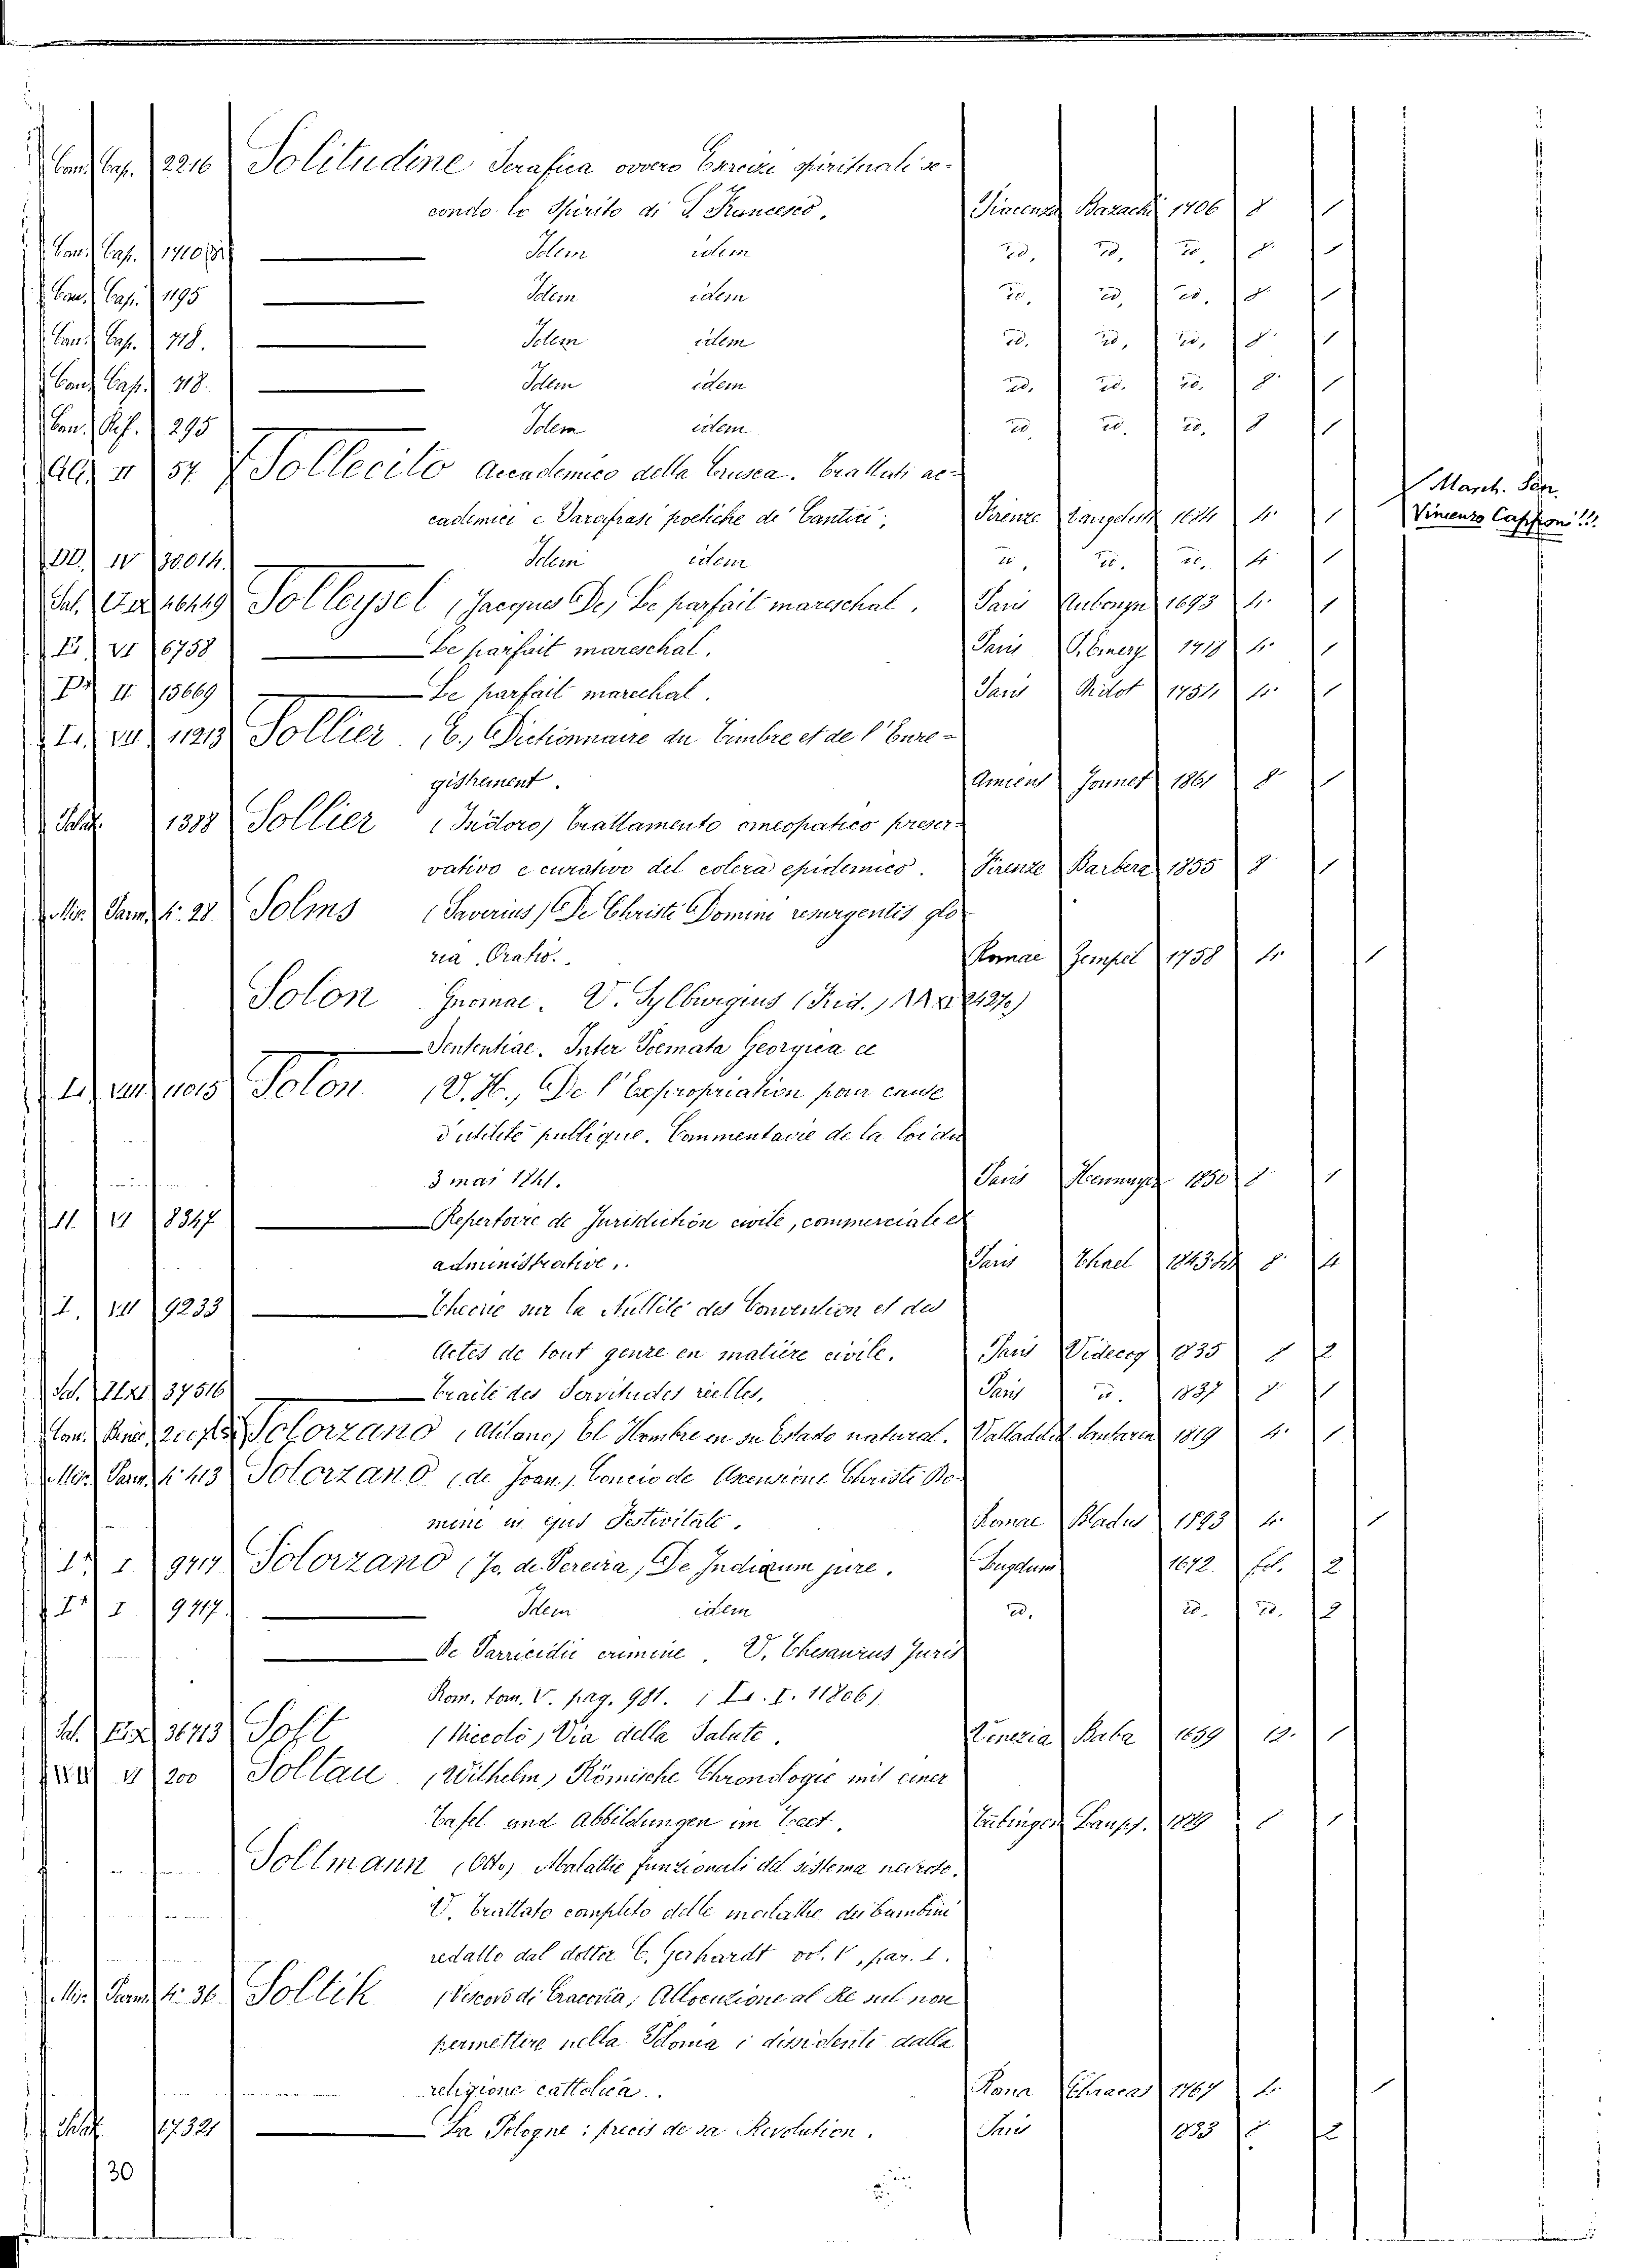 Con. Cap. 2216 Solitudine Serafica ovvero Esercizi spirituali se-
condo lo Spirito di S. Francesco, Piacenza Bazachi 1706 8 1
Con. Cap. 1710 Idem idem id. id. id. 8. 1
Con. Cap. 1195 Idem idem id. id. id. 8 1
Con. Cap. 718. Idem idem id. id. id. 8. 1
Con. Cap. 718. Idem idem id. id. id. 8. 1
Con. Rif. 295 Idem idem id. id. id. 8 1
57 Sollecito Accademico della Crusca. Trattati ac-
cademici e Parafrasi poetiche de' Cantici, Firenze 4. 1
March. Sen.
Vincenzo Capponi!!!
IV 30014. Idem idem id. id. id. 4. 1
Solleysel (Jacques De) Le parfait mareschal. Paris Aubouyn 1693 4. 1
VI 6758 Le parfait mareschal. Paris Emery 1718 4. 1
II 15669 Le parfait marechal. Paris Didot 1754 4. 1
11213 Sollier (C.) Dictionnaire du Timbre et de l'Enre-
gistrement. Amiens Jeunet 1861 8. 1
1388 Sollier (Isidoro) Trattamento omeopatico preser-
vativo e curativo del colera epidemico. Firenze Barbera 1855 8 1
Mis. Parm. fi. 28. Solms (Saverius) De Christi Domini resurgentis glo-
ria, Oratio. Romae Zempel 1758 4. 1
Solon Gnomae. V. Sylburgius (Frid.)
Sententiae. Inter Poemata Georgica ec
Solon (V. H., De l'Expropriation pour cause
d'utilité publique. Commentaire de la loi du
3 mai 1841. Paris Hennuyer 1850 8 1
VI 8347 Repertoire de Jurisdiction civile, commerciale et
administrative. Paris 8. 4
I. VII 9233 Theorie sur la Nullité des Convention et des
Actes de tout genre en matière civile. Paris Videcoq 1835 8 2
37516 Traité des Servitudes réelles. Paris id. 1837 8 1
Solorzano (Atilano) El Hombre en su Estado natural. Valladolid Santaren 1819 4. 1
Mis. Parm. fi. 413 Solorzano (de Joan.) Concio de Ascensione Christi Do-
mini in ejus Festivitate. Romae Bladus 1593 4. 1
I 9717 Solorzano (Jo. de Pereira) De Indiarum jure. Lugduni 1672. fol. 2
I 9717. Idem idem id. id. id. 2
De Parricidii crimine. V. Thesaurus Juris
Rom. tom. V. pag. 981. I. 11806)
36713 Solt (Niccolò) Via della Salute. Venezia Baba 1659 12. 1
200 Soltau (Wilhelm) Römische Chronologie mit einer
Tafel und Abbildungen im Text. Tübingen Laupp. 1889 8 1
Soltmann (Otto) Malattie funzionali del sistema nervoso.
V. Trattato completo delle malattie dei bambini
redatto dal dottor C. Gerhardt vol. V, par. 1.
Mis. Parm. fi. 36. Soltik (Vescovo di Cracovia) Allocuzione al Re sul non
permettere nella Polonia i dissidenti dalla
religione cattolica. Roma Chracas 1767 4. 1
17321 La Pologne: precis de sa Revolution. Paris 1833 8. 2
30